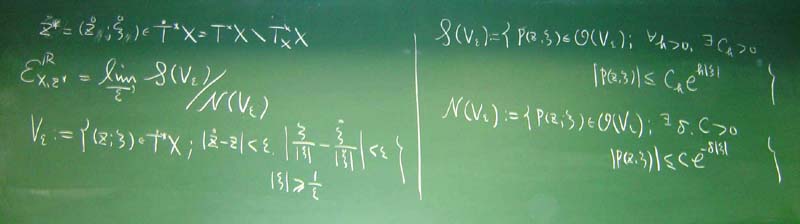 z̊* = (z̊; ξ̊) ∈ Ṫ*X = T*X \ T*_X X
ℰ^ℝ_{X,z*} = lim_{ε} 𝒮(V_ε) / 𝒩(V_ε)
V_ε := { (z; ξ) ∈ T*X ; |z̊ - z| < ε, | ξ/|ξ| - ξ̊/|ξ̊| | < ε
|ξ| ≥ 1/ε }
𝒮(V_ε) := { P(z,ξ) ∈ 𝒪(V_ε); ∀h>0, ∃C_h>0
|P(z,ξ)| ≤ C_h e^{h|ξ|} }
𝒩(V_ε) := { P(z,ξ) ∈ 𝒪(V_ε); ∃δ, C>0
|P(z,ξ)| ≤ C e^{-δ|ξ|} }